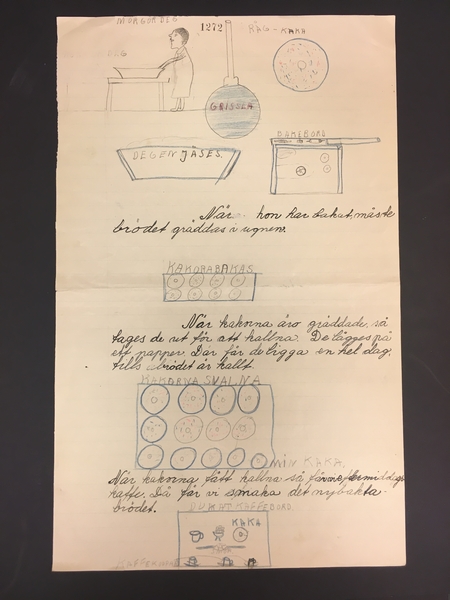 MOR GÖR DEG
1272
RÅG-KAKA
DEG
GRISSLA
BAKEBORD
DEGEN JÄSES.
När hon har bakat, måste
brödet gräddas i ugnen.
KAKORA BAKAS
När kakorna äro gräddade, så
tages de ut för att kallna. De lägges på
ett papper. Där får de ligga en hel dag,
tills brödet är kallt.
KAKORNA SVALNA
MIN KAKA.
När kakorna fått kallna så få vi eftermiddags
kaffe. Då får vi smaka det nybakta
brödet.
DUKAT KAFFEBORD
KAKA